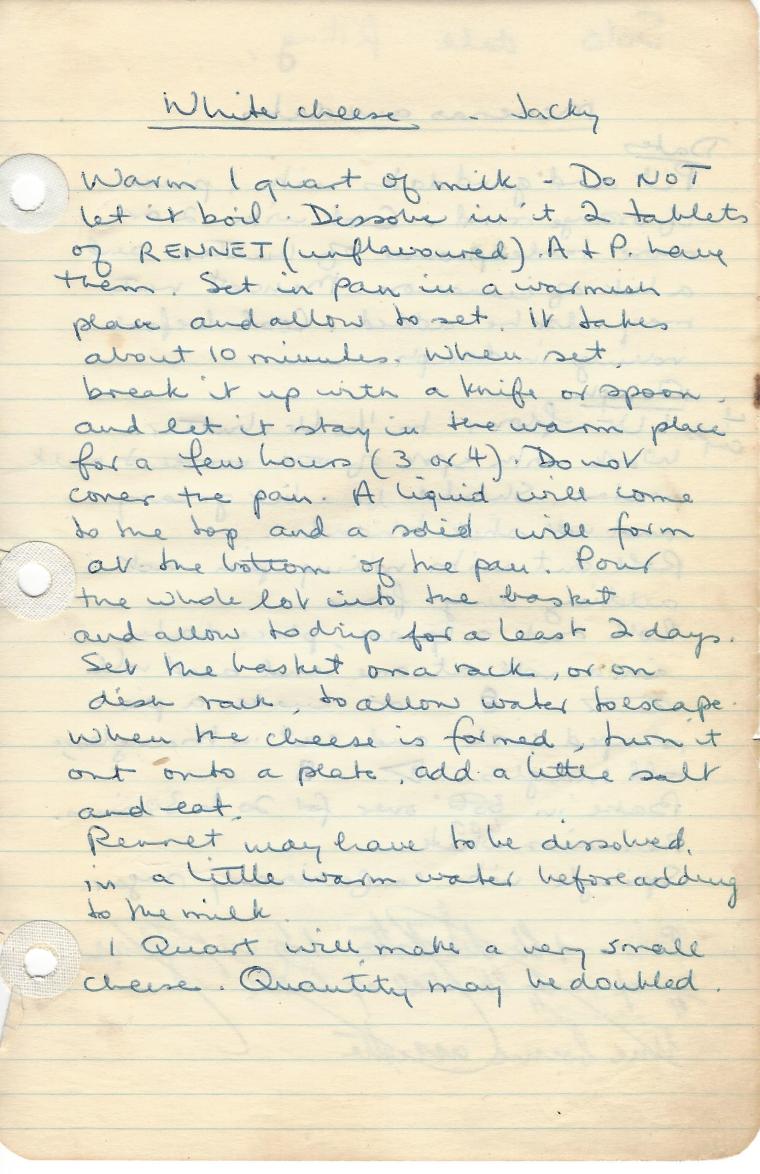 White cheese - Jacky
Warm 1 quart of milk - Do NOT
let it boil. Dissolve in it 2 tablets
of RENNET (unflavoured). A + P. have
them. Set in pan in a warmish
place and allow to set. It takes
about 10 minutes. When set,
break it up with a knife or spoon.
and let it stay in the warm place
for a few hours (3 or 4). Do not
cover the pan. A liquid will come
to the top and a solid will form
at the bottom of the pan. Pour
the whole lot into the basket
and allow to drip for a least 2 days.
Set the basket on a rack, or on
dish rack, to allow water to escape.
When the cheese is formed, turn it
out onto a plate, add a little salt
and eat.
Rennet may have to be dissolved,
in a little warm water before adding
to the milk.
1 Quart will make a very small
cheese. Quantity may be doubled.